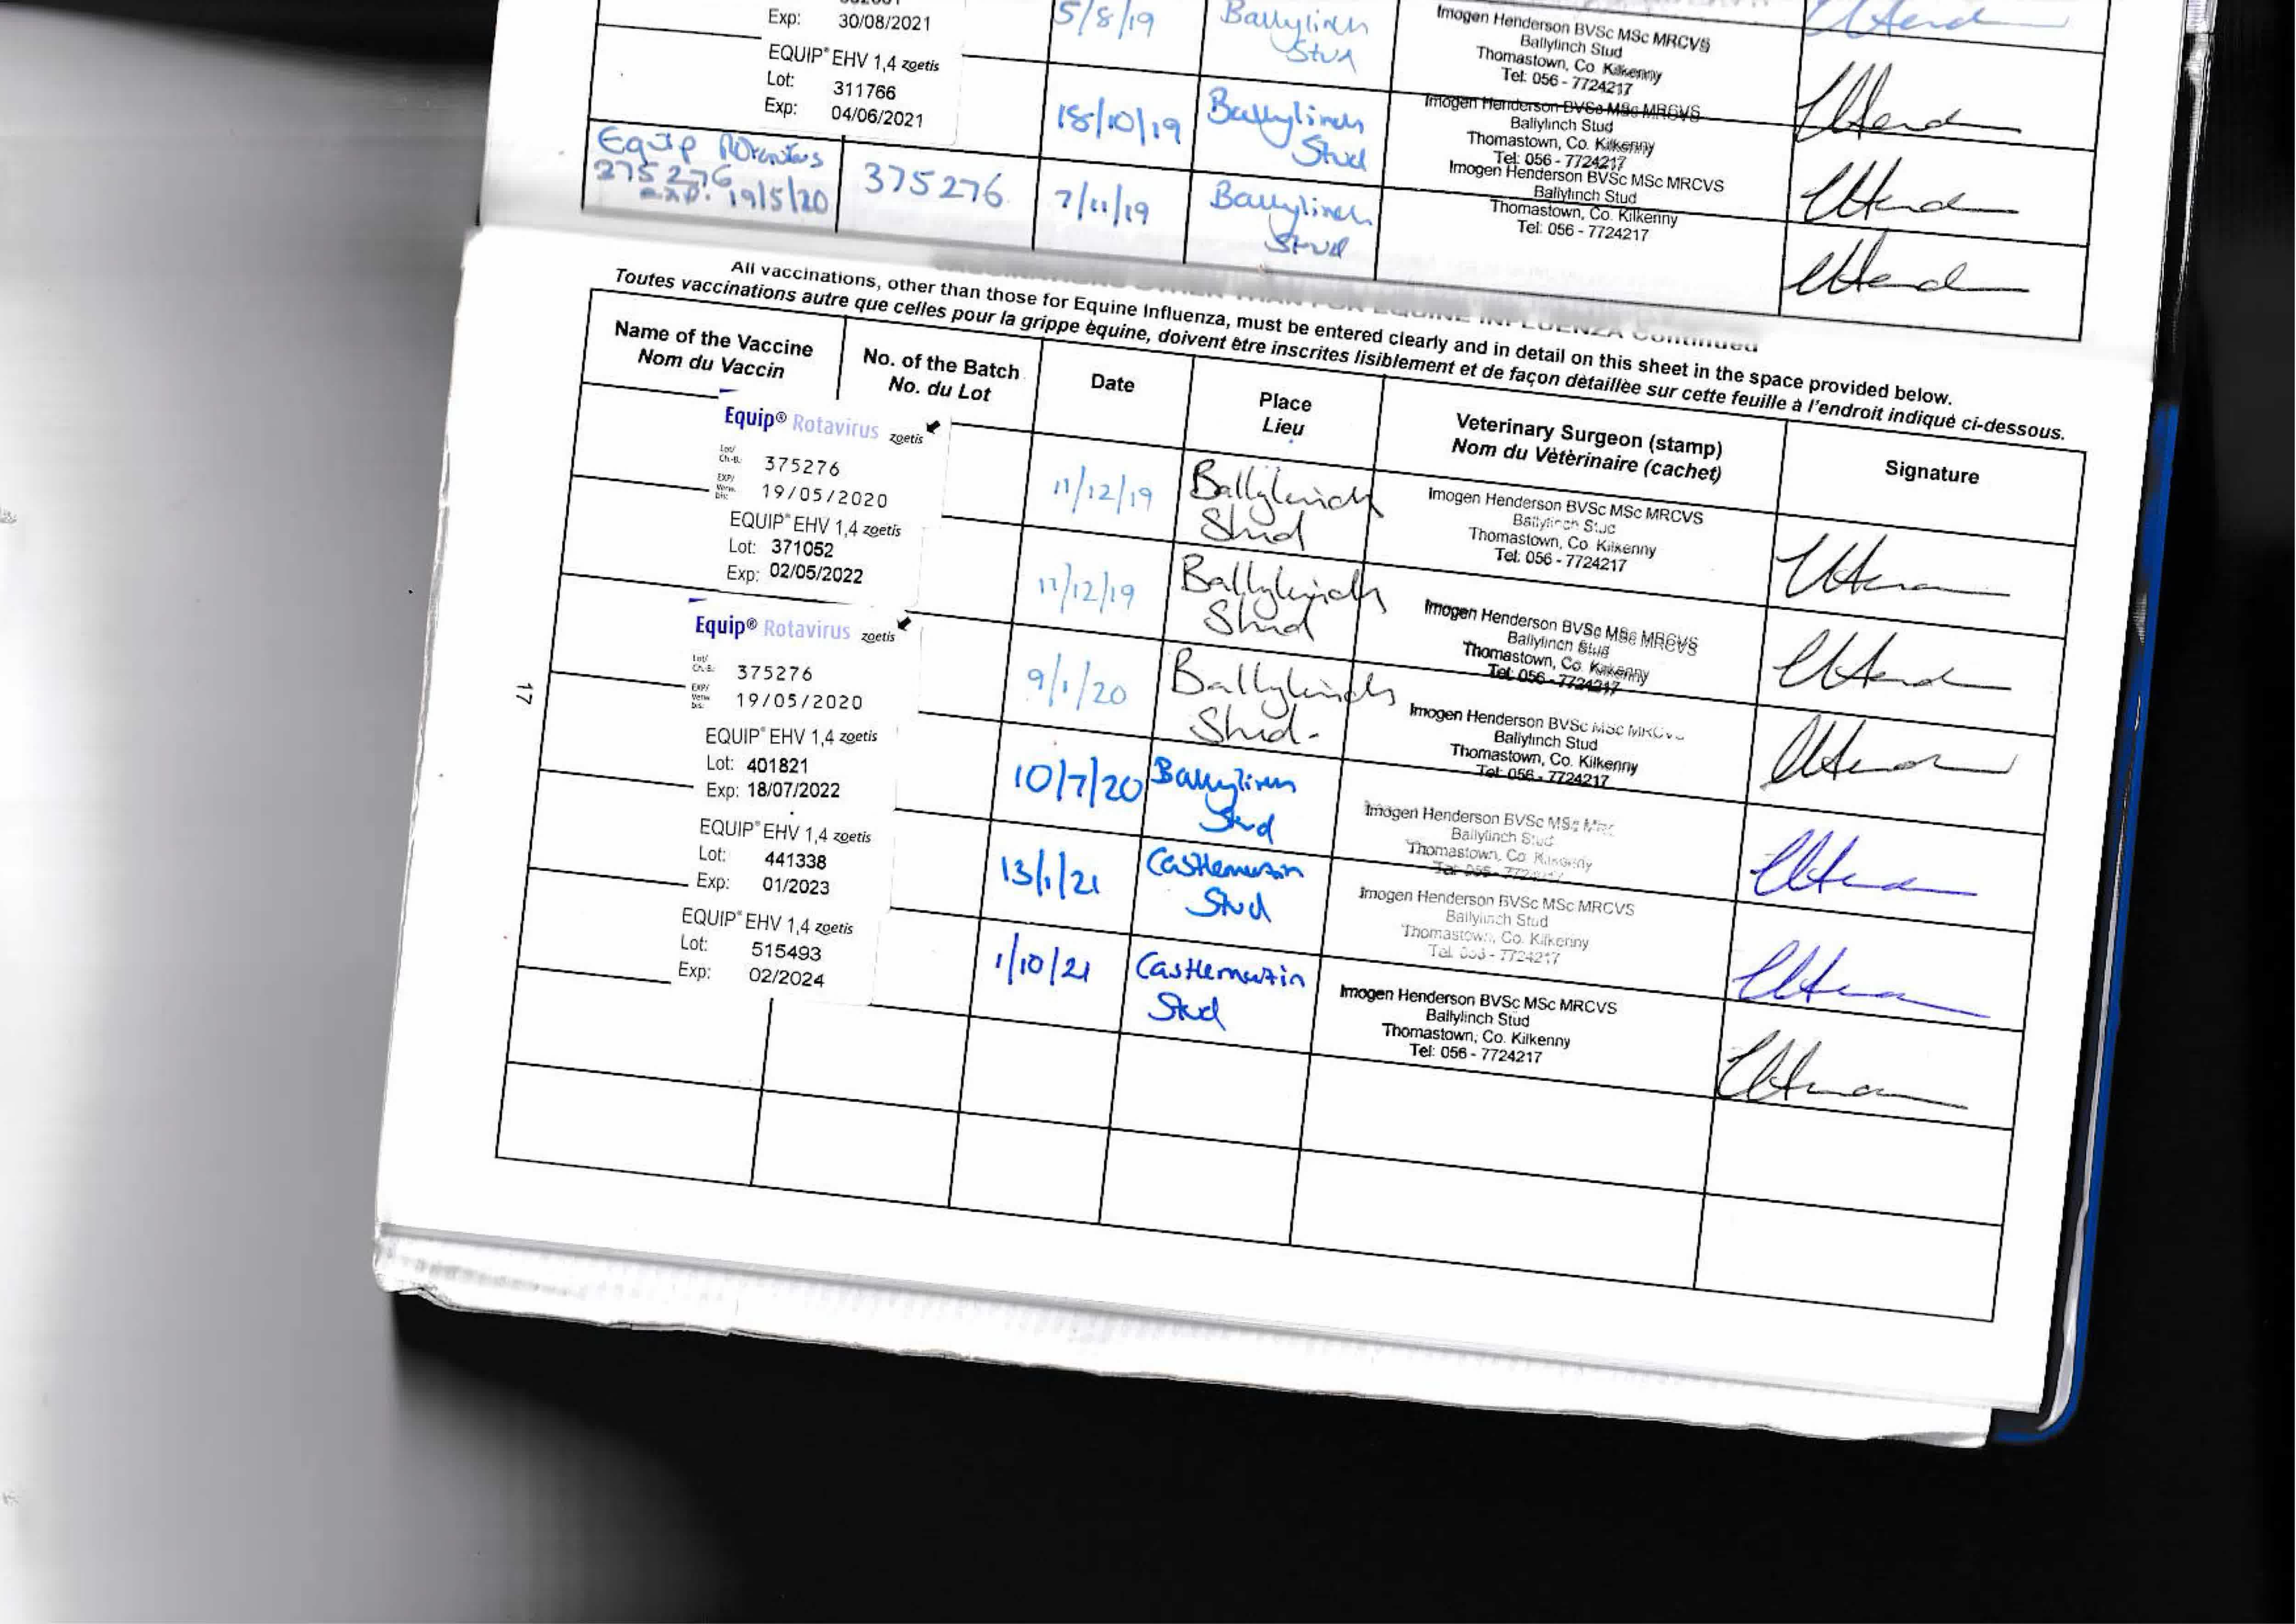 Exp: 30/08/2021
5/8/19
Ballylinch
Stud
Imogen Henderson BVSc MSc MRCVS
Ballylinch Stud
Thomastown, Co. Kilkenny
Tel: 056 - 7724217
EQUIP® EHV 1,4 zoetis
Lot: 311766
Exp: 04/06/2021
18/10/19
Ballylinch
Stud
Imogen Henderson BVSc MSc MRCVS
Ballylinch Stud
Thomastown, Co. Kilkenny
Tel: 056 - 7724217
Equip Rotavirus
275276
exp. 19/5/20
375276
7/11/19
Ballylinch
Stud
Imogen Henderson BVSc MSc MRCVS
Ballylinch Stud
Thomastown, Co. Kilkenny
Tel: 056 - 7724217
EQUINE INFLUENZA Continued
All vaccinations, other than those for Equine Influenza, must be entered clearly and in detail on this sheet in the space provided below.
Toutes vaccinations autre que celles pour la grippe èquine, doivent ètre inscrites lisiblement et de façon dètaillèe sur cette feuille à l'endroit indiquè ci-dessous.
Name of the Vaccine
Nom du Vaccin
No. of the Batch
No. du Lot
Date
Place
Lieu
Veterinary Surgeon (stamp)
Nom du Vètèrinaire (cachet)
Signature
Equip® Rotavirus zoetis
Lot/
Ch.-B.: 375276
EXP/
Verw.
bis: 19/05/2020
11/12/19
Ballylinch
Stud
Imogen Henderson BVSc MSc MRCVS
Ballylinch Stud
Thomastown, Co. Kilkenny
Tel: 056 - 7724217
EQUIP® EHV 1,4 zoetis
Lot: 371052
Exp: 02/05/2022
11/12/19
Ballylinch
Stud
Imogen Henderson BVSc MSc MRCVS
Ballylinch Stud
Thomastown, Co. Kilkenny
Tel: 056 - 7724217
Equip® Rotavirus zoetis
Lot/
Ch.-B.: 375276
EXP/
Verw.
bis: 19/05/2020
9/1/20
Ballylinch
Stud.
Imogen Henderson BVSc MSc MRCVS
Ballylinch Stud
Thomastown, Co. Kilkenny
Tel: 056 - 7724217
EQUIP® EHV 1,4 zoetis
Lot: 401821
Exp: 18/07/2022
10/7/20
Ballylinch
Stud
Imogen Henderson BVSc MSc
Ballylinch Stud
Thomastown, Co. Kilkenny
Tel: 056 - 7724217
EQUIP® EHV 1,4 zoetis
Lot: 441338
Exp: 01/2023
13/1/21
Castlemartin
Stud
Imogen Henderson BVSc MSc MRCVS
Ballylinch Stud
Thomastown, Co. Kilkenny
Tel: 056 - 7724217
EQUIP® EHV 1,4 zoetis
Lot: 515493
Exp: 02/2024
1/10/21
Castlemartin
Stud
Imogen Henderson BVSc MSc MRCVS
Ballylinch Stud
Thomastown, Co. Kilkenny
Tel: 056 - 7724217
17